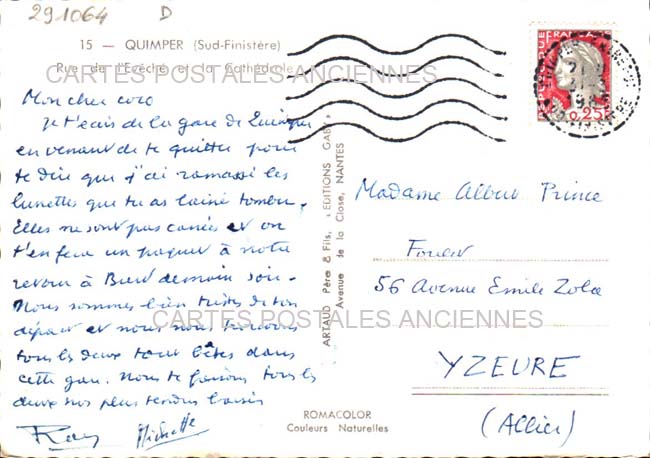 291064 D
15 — QUIMPER (Sud-Finistère)
Rue de l'Evêché et la Cathédrale
CARTES POSTALES ANCIENNES
Mon cher coco
Je t'écris de la gare de Quimper
en venant de te quitter pour
te dire que j'ai ramassé les
lunettes que tu as laissé tomber.
Elles ne sont pas cassées et on
t'en fera un paquet à notre
retour à demain soir.
Nous sommes bien tristes de ton
départ et nous nous trouvons
tous les deux tout bêtes dans
cette gare. Nous te faisons tous les
deux nos plus tendres baisers
Michette
CARTES POSTALES ANCIENNES
ARTAUD Père & Fils, « EDITIONS GABY »
Avenue de la Close, NANTES
REPUBLIQUE FRANCAISE
0,25F
Madame Albert Prince
56 Avenue Emile Zola
YZEURE
(Allier)
ROMACOLOR
Couleurs Naturelles